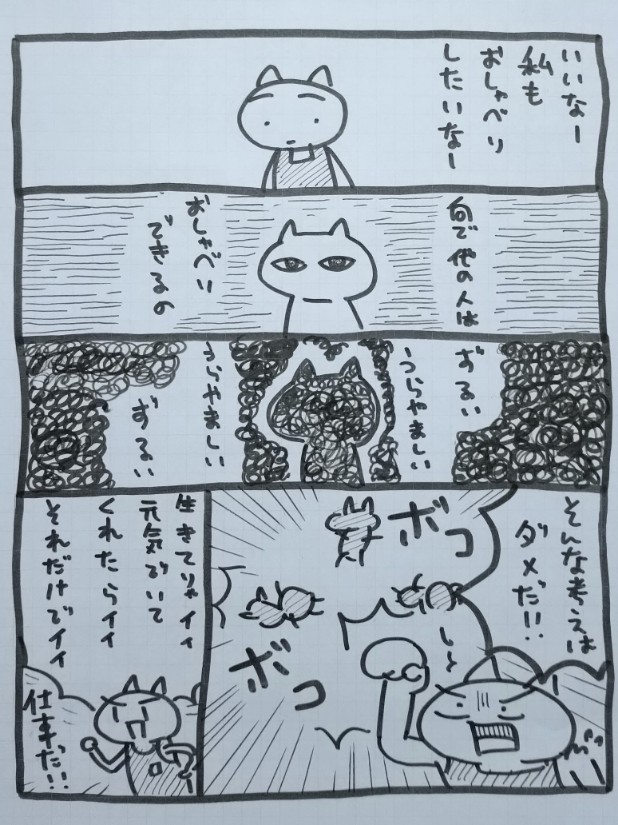 いいなー
私も
おしゃべり
したいなー
何で他の人は
おしゃべり
できるの
ずるい
うらやましい
うらやましい
ずるい
そんな考えは
ダメだ!!
ボコ
ボコ
生きてりゃイイ
元気でいて
くれたらイイ
それだけでイイ
仕事だ!!